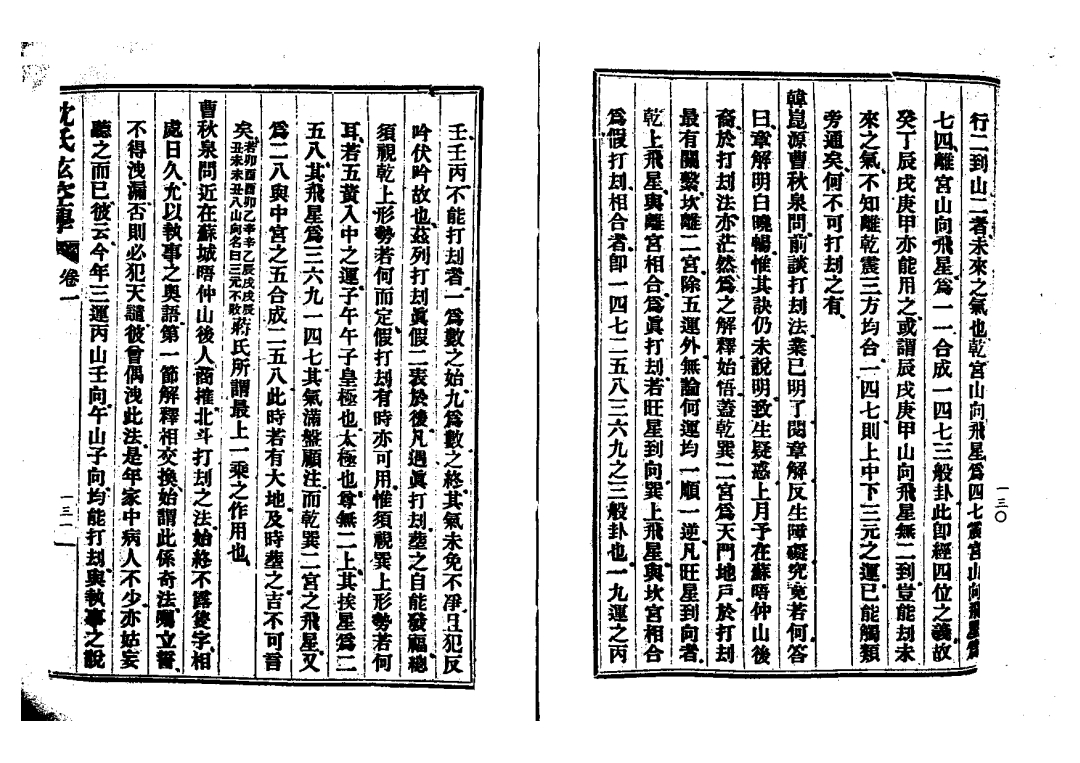 行二到山二者未來之氣也乾宮山向飛星爲四七震宮山向飛星爲
七四離宮山向飛星爲一一合成一四七三般卦此卽經四位之義故
癸丁辰戌庚甲亦能用之或謂辰戌庚甲山向飛星無二到豈能刦未
來之氣不知離乾震三方均合一四七則上中下三元之運已能觸類
旁通矣何不可打刦之有
韓崑源曹秋泉問前談打刦法業已明了閱章解反生障礙究竟若何答
曰章解明白曉暢惟其訣仍未說明致生疑惑上月予在蘇晤仲山後
裔於打刦法亦茫然爲之解釋始悟蓋乾巽二宮爲天門地戶於打刦
最有關繫坎離二宮除五運外無論何運均一順一逆凡旺星到向者
乾上飛星與離宮相合爲眞打刦若旺星到向巽上飛星與坎宮相合
爲假打刦相合者卽一四七二五八三六九之三般卦也一九運之丙
一三〇
壬壬丙不能打刦者一爲數之始九爲數之終其氣未免不凈且犯反
吟伏吟故也茲列打刦眞假二表於後凡遇眞打刦塟之自能發福總
須視乾上形勢若何而定假打刦有時亦可用惟須視巽上形勢若何
耳若五黃入中之運子午午子皇極也太極也尊無二上其挨星爲二
五八其飛星爲三六九一四七其氣滿盤顧注而乾巽二宮之飛星又
爲二八與中宮之五合成二五八此時若有大地及時塟之吉不可言
矣若卯酉酉卯乙辛辛乙辰戌戌辰丑未未丑八山向名曰三元不敗蔣氏所謂最上一乘之作用也
曹秋泉問近在蘇城晤仲山後人商搉北斗打刦之法始終不露隻字相
處日久允以執事之奧語第一節解釋相交換始謂此係奇法囑立誓
不得洩漏否則必犯天譴彼曾偶洩此法是年家中病人不少亦姑妄
聽之而已彼云今年三運丙山壬向午山子向均能打刦與執事之說
沈氏玄空學 卷一
一三一